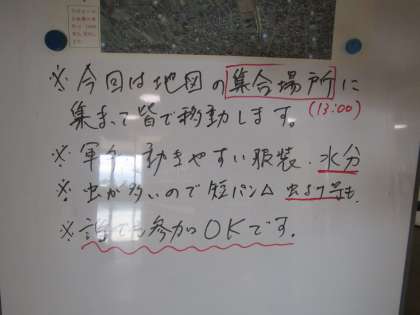 ※今回は地図の集合場所に
(13:00)
集まって皆で移動します。
※軍手、動きやすい服装、水分
※虫が多いので短パン△ 虫よけ等も
※誰でも参加OKです。